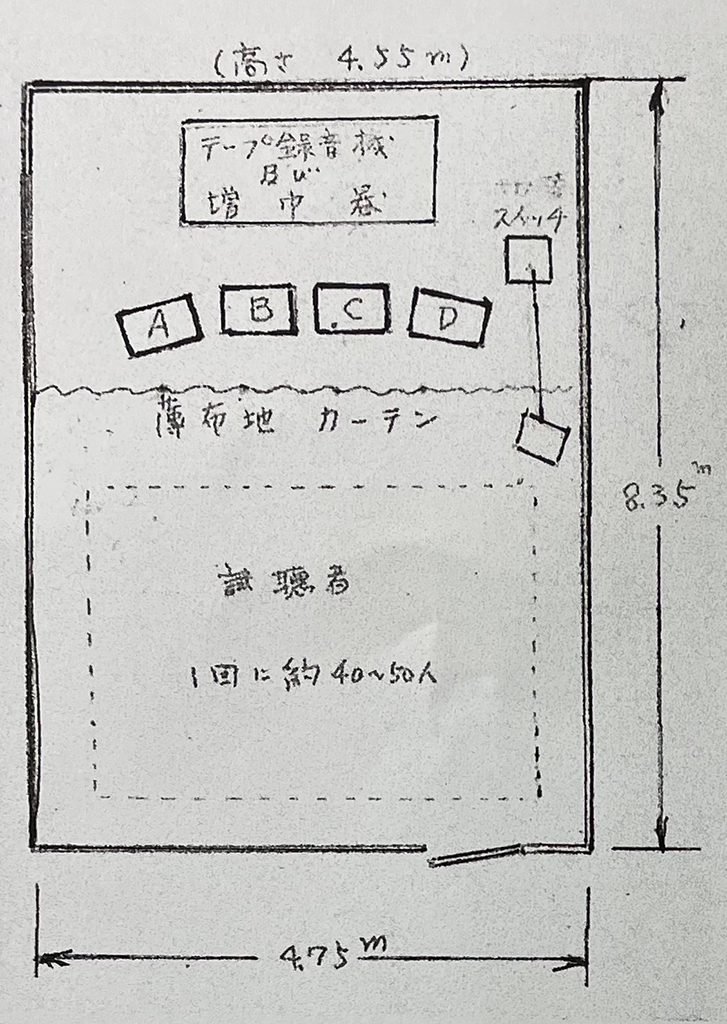 (高さ 4.55m)
テープ録音機
及び
増巾器
スイッチ
A
B
C
D
薄布地 カーテン
試聴者
1回に約40~50人
8.35m
4.75m